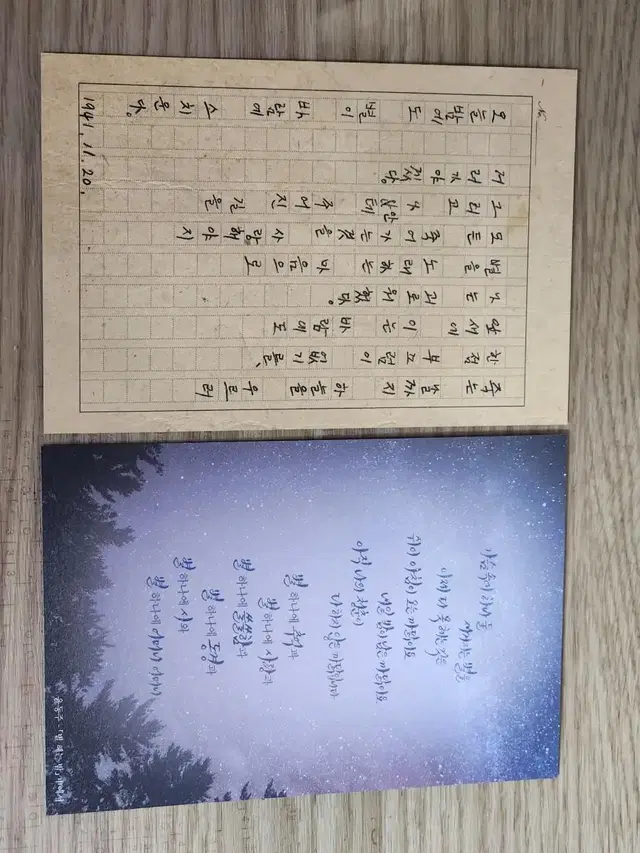 죽는 날까지 하늘을 우르러
한점 부끄럼이 없기를、
잎새에 이는 바람에도
나는 괴로워했다。
별을 노래하는 마음으로
모든 죽어가는것을 사랑해야지
그리고 나안테 주어진 길을
거러가야겠다。
오늘밤에도 별이 바람에 스치운다。
1941. 11. 20.
가슴 속에 하나 둘
새겨지는 별을
이제 다 못 헤는 것은
쉬이 아침이 오는 까닭이요
내일 밤이 남은 까닭이요
아직 나의 청춘이
다하지 않은 까닭입니다
별 하나에 추억과
별 하나에 사랑과
별 하나에 쓸쓸함과
별 하나에 동경과
별 하나에 시와
별 하나에 어머니 어머니
윤동주 - '별 헤는 밤'